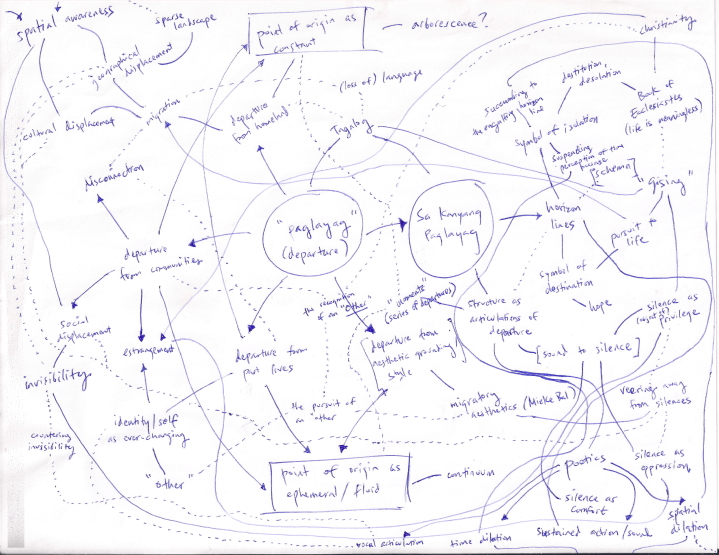 spatial awareness
sparse
landscape
geographical
displacement
point of origin as
constant
arborescence?
christianity
migration
cultural displacement
departure
from homeland
(loss of) language
Tagalog
succumbing to
the engulfing horizon
line
destitution,
desolation
symbol of isolation
Book of
Ecclesiastes
(life is meaningless)
suspending
perception of time
[schema]
disconnection
"gising"
"paglayag"
(departure)
Sa Kanyang
Paglayag
horizon
lines
pursuit
life
departure
from communities
symbol of
destination
hope
the recognition
of an "other"
(series of departures)
structure as
articulations of
departure
silence as
privilege
social
displacement
estrangement
departure from
past lives
departure from
aesthetic grounding/
style
[sound to silence]
invisibility
identity/self
as ever-changing
the pursuit of
an other
migratory
aesthetics (Mieke Bal)
veering away
from silences
countering
invisibility
"other"
point of origin as
ephemeral/fluid
continuum
poetics
silence as
oppression
silence as
comfort
spatial
dilation
vocal articulation
time dilation
sustained action/sound